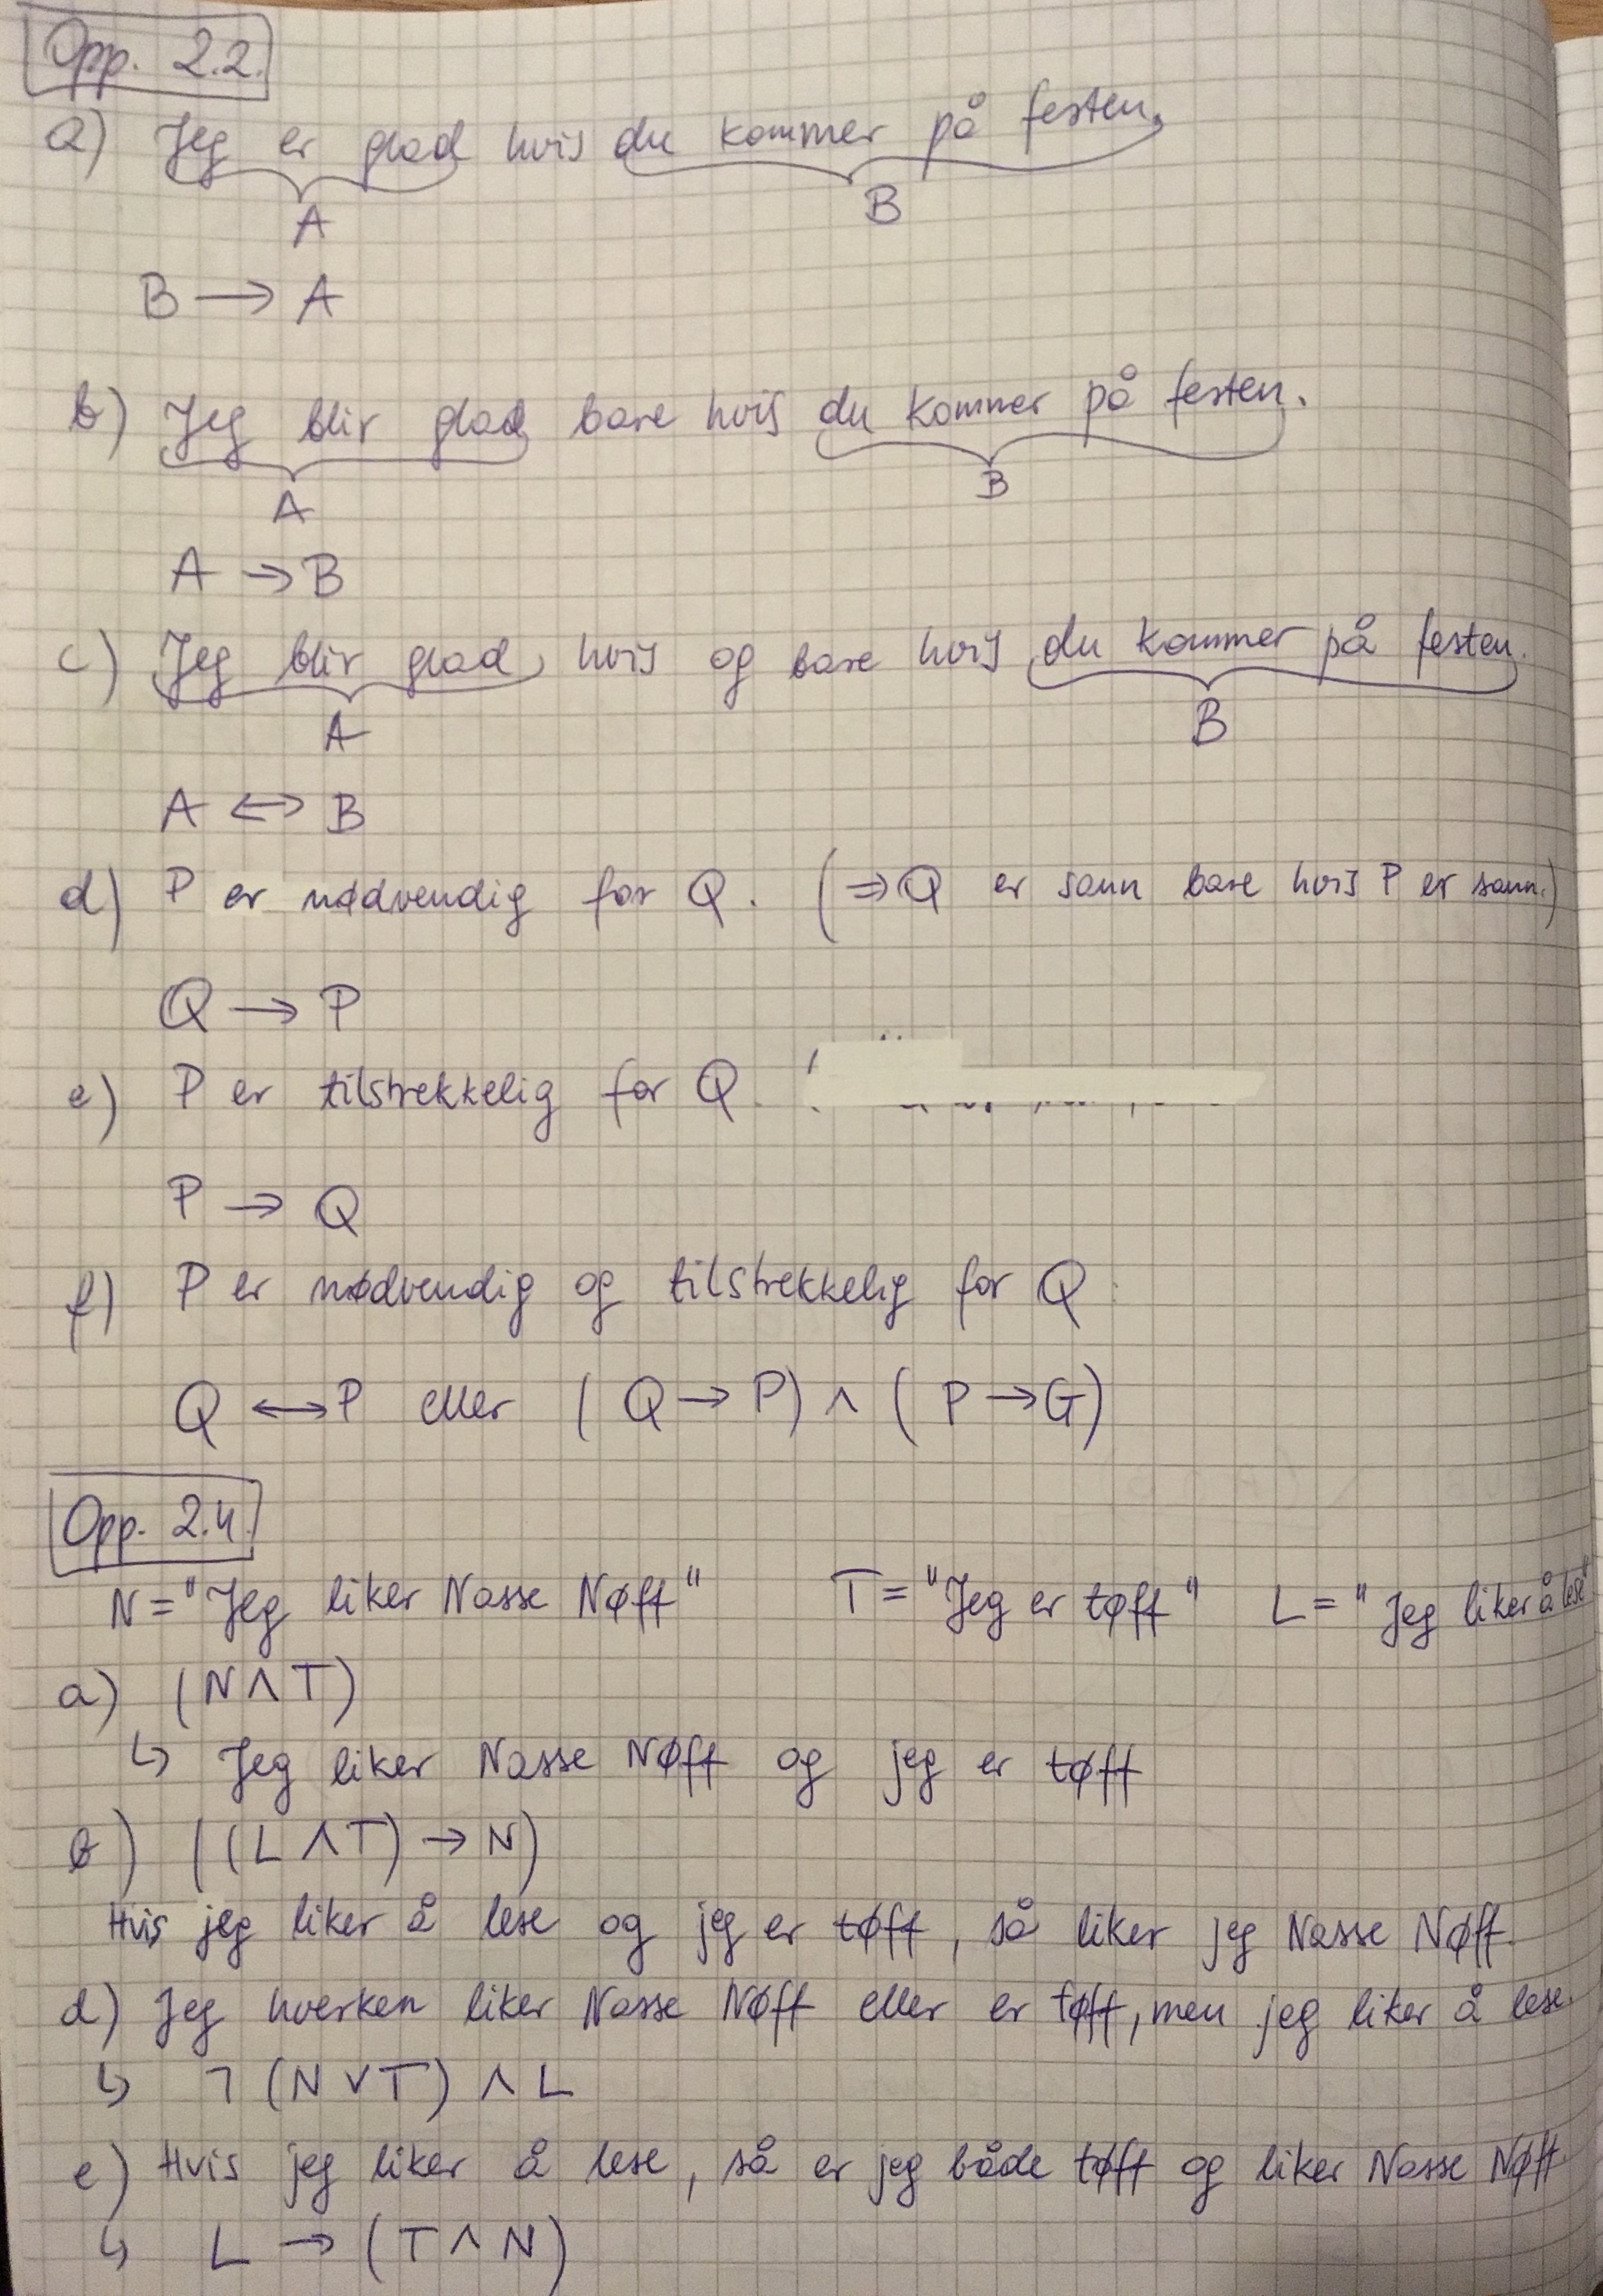 Opp. 2.2.
a) Jeg er glad hvis du kommer på festen.
A B
B → A
b) Jeg blir glad bare hvis du kommer på festen.
A B
A → B
c) Jeg blir glad hvis og bare hvis du kommer på festen.
A B
A ↔ B
d) P er nødvendig for Q. (⇒ Q er sann bare hvis P er sann.)
Q → P
e) P er tilstrekkelig for Q.
P → Q
f) P er nødvendig og tilstrekkelig for Q.
Q ↔ P eller (Q → P) ∧ (P → G)
Opp. 2.4.
N = "Jeg liker Nasse Nøff" T = "Jeg er tøff" L = "Jeg liker å lese"
a) (N ∧ T)
↳ Jeg liker Nasse Nøff og jeg er tøff
b) ((L ∧ T) → N)
Hvis jeg liker å lese og jeg er tøff, så liker jeg Nasse Nøff.
d) Jeg hverken liker Nasse Nøff eller er tøff, men jeg liker å lese.
↳ ¬ (N ∨ T) ∧ L
e) Hvis jeg liker å lese, så er jeg både tøff og liker Nasse Nøff.
↳ L → (T ∧ N)